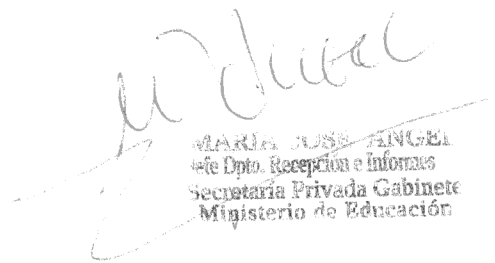 MARIA JOSE ANGEL
Jefe Dpto. Recepción e Informes
Secretaria Privada Gabinete
Ministerio de Educación